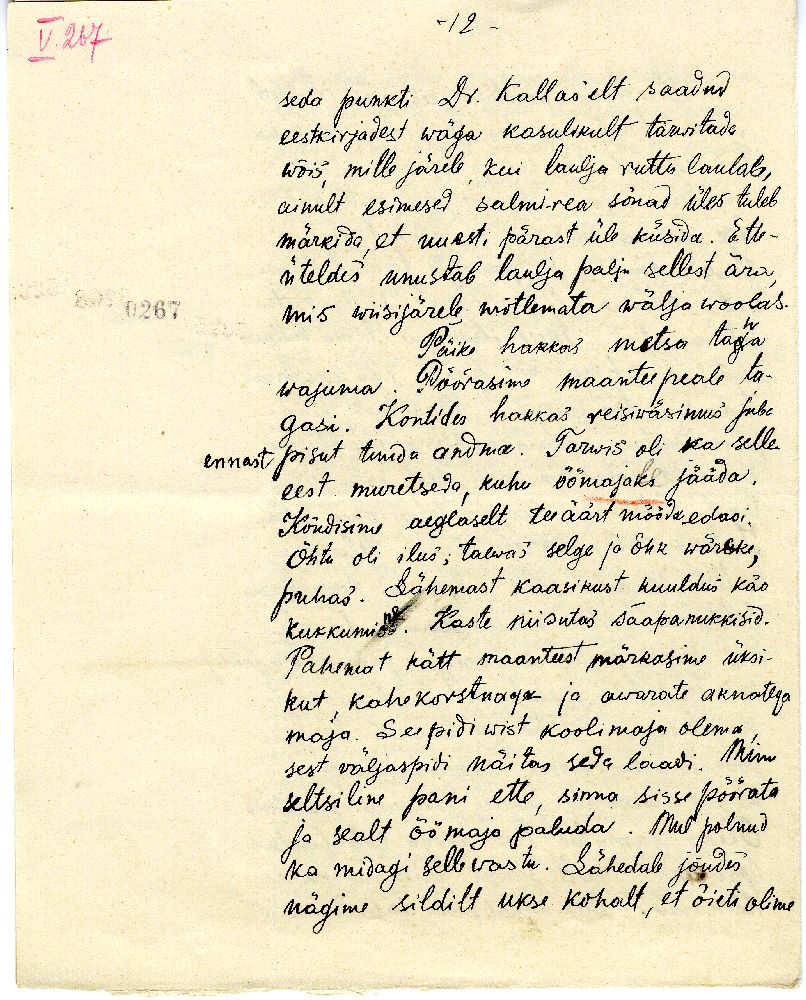 -12-
V. 267
seda punkti Dr. Kallas'elt saadud
eestkirjadest wäga kasulikult tarwitada
wõis, mille järele, kui laulja ruttu laulab,
ainult esimesed salmi-rea sõnad üles tuleb
märkida, et uuesti pärast üle küsida. Ette-
üteldes unustab laulja palju sellest ära,
0267
mis wiisijärele mõtlemata wälja woolas.
Päike hakkas metsa taha
wajuma. Pöörasime maanteepeale ta-
gasi. Kontides hakkas reisiwäsimus juba
ennast pisut tunda andma. Tarwis oli ka selle
eest muretseda, kuhu öömajaks jääda.
Kõndisime aeglaselt teeäärt mööda edasi.
Õhtu oli ilus; taewas selge ja õhk wärske,
puhas. Lähemast kaasikust kuuldus käo
kukkumist. Kaste niisutas saapanukkisid.
Pahemat kätt maanteest märkasime üksi-
kut, kahekorstnaga ja awarate aknatega
maja. See pidi wist koolimaja olema,
sest väljaspidi näitas seda laadi. Minu
seltsiline pani ette, sinna sisse pöörata
ja sealt öömaja paluda. Mul polnud
ka midagi selle wastu. Lähedale jõudes
nägime sildilt ukse kohalt, et õieti olime